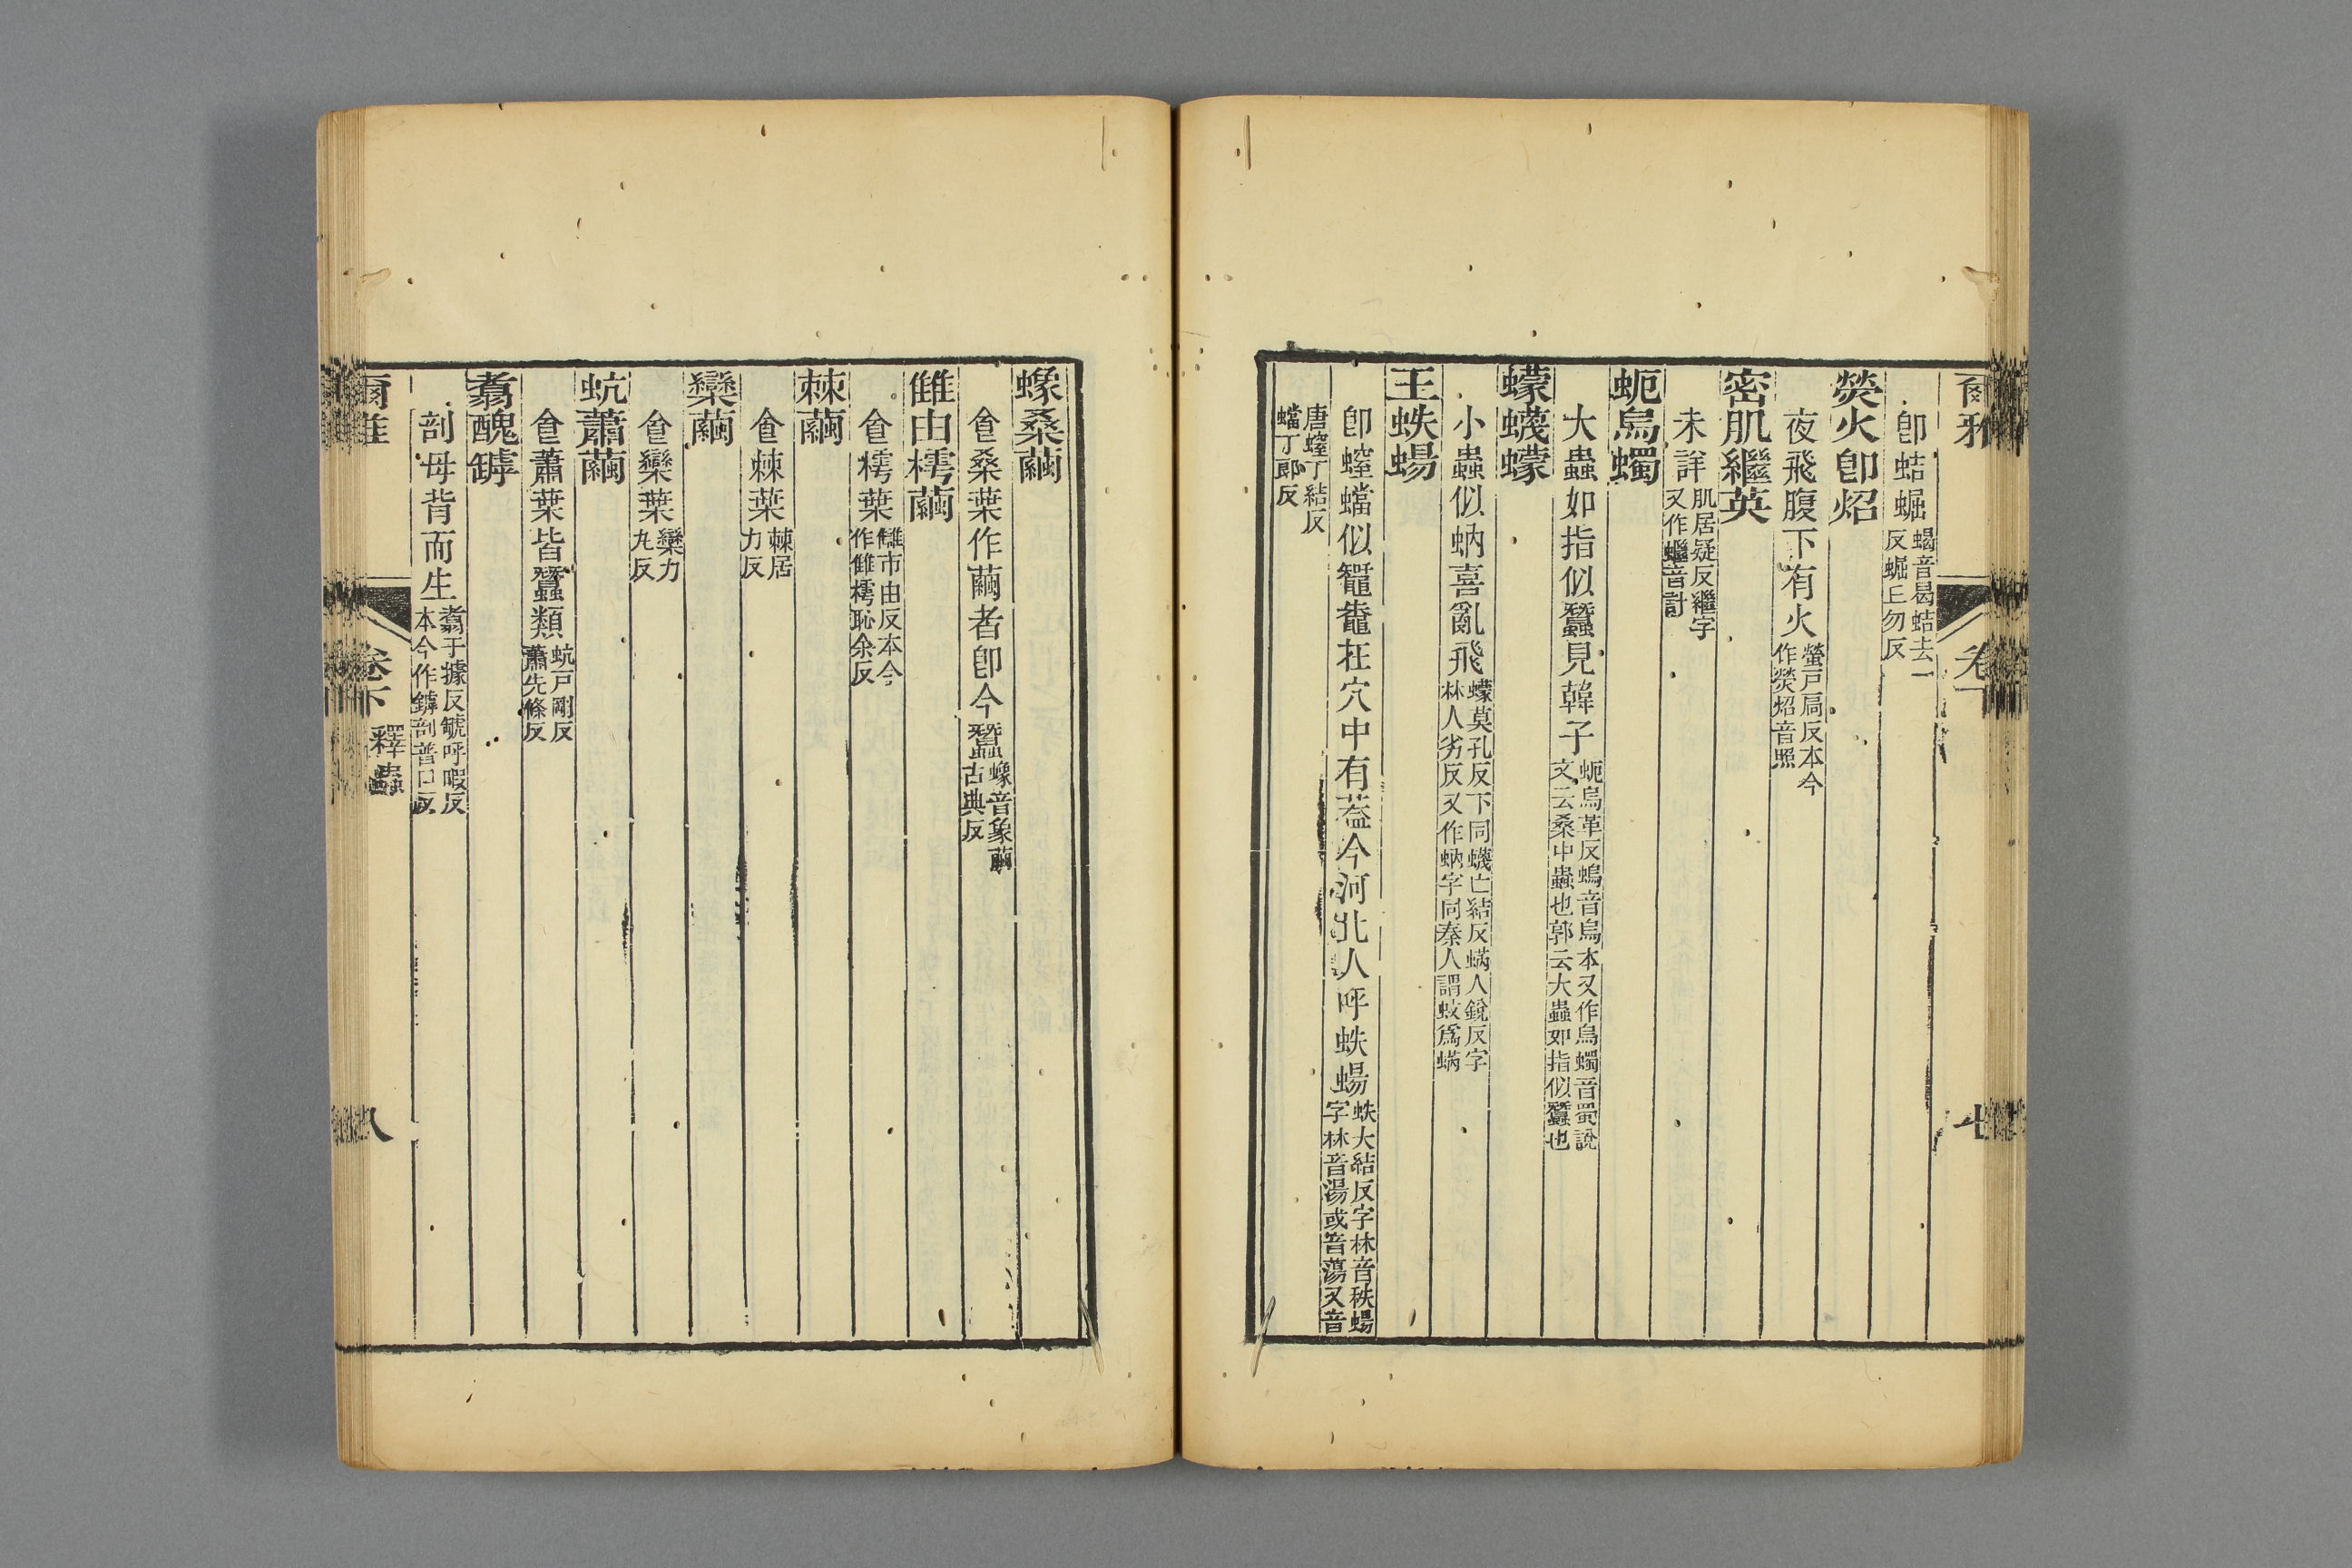 爾雅 卷下 七
即蛣𧌑蝎音曷蛣去一反𧌑丘勿反
熒火即炤
夜飛腹下有火螢戸扃反本今作熒炤音照
密肌繼英
未詳肌居疑反繼字又作蠿音計
蚅烏蠋
大蟲如指似蠶見韓子蚅烏革反螐音烏本又作烏蠋音蜀說文云桑中蟲也郭云大蟲如指似蠶也
蠓蠛蠓
小蟲似蚋喜亂飛蠓莫孔反下同蠛亡結反䗈人銳反字林人劣反又作蚋字同秦人謂蚊爲䗈
王蛈蝪
即螲蟷似䵹鼄在穴中有葢今河北人呼蛈蝪蛈大結反字林音秩蝪字林音湯或音蕩又音
唐螲丁結反蟷丁郎反
蟓桑繭
食桑葉作繭者即今蠶蟓音象繭古典反
雔由樗繭
食樗葉讎市由反本今作雔樗恥余反
棘繭
食棘葉棘居力反
欒繭
食欒葉欒力丸反
蚢蕭繭
食蕭葉皆蠶類蚢戸剛反蕭先條反
翥醜罅
剖母背而生翥于據反䖔呼暇反本今作罅剖普口反
爾雅 卷下 釋蟲 八